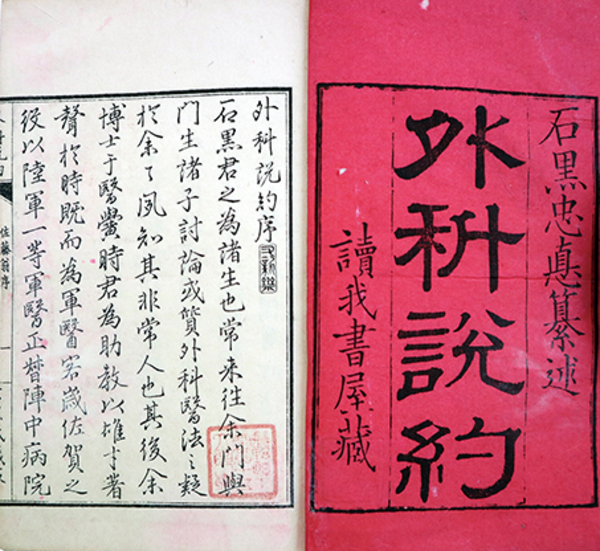 石黒忠悳纂述
外科說約
讀我書屋藏
外科說約序
石黒君之為諸生也常来往余門與
門生諸子討論或質外科醫法之疑
於余々夙知其非常人也其後余
博士于醫黌時君為助教以雄才著
聲於時既而為軍醫客歳佐賀之
役以陸軍一等軍醫正督陣中病院
佐藤翁序